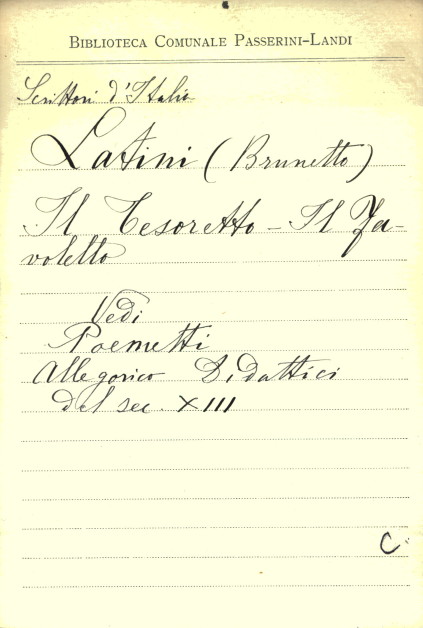 BIBLIOTECA COMUNALE PASSERINI-LANDI
Scrittori d'Italia
Latini (Brunetto)
Il Tesoretto - Il Fa-
voletto
Vedi
Poemetti
Allegorico Didattici
del sec. XIII
C.